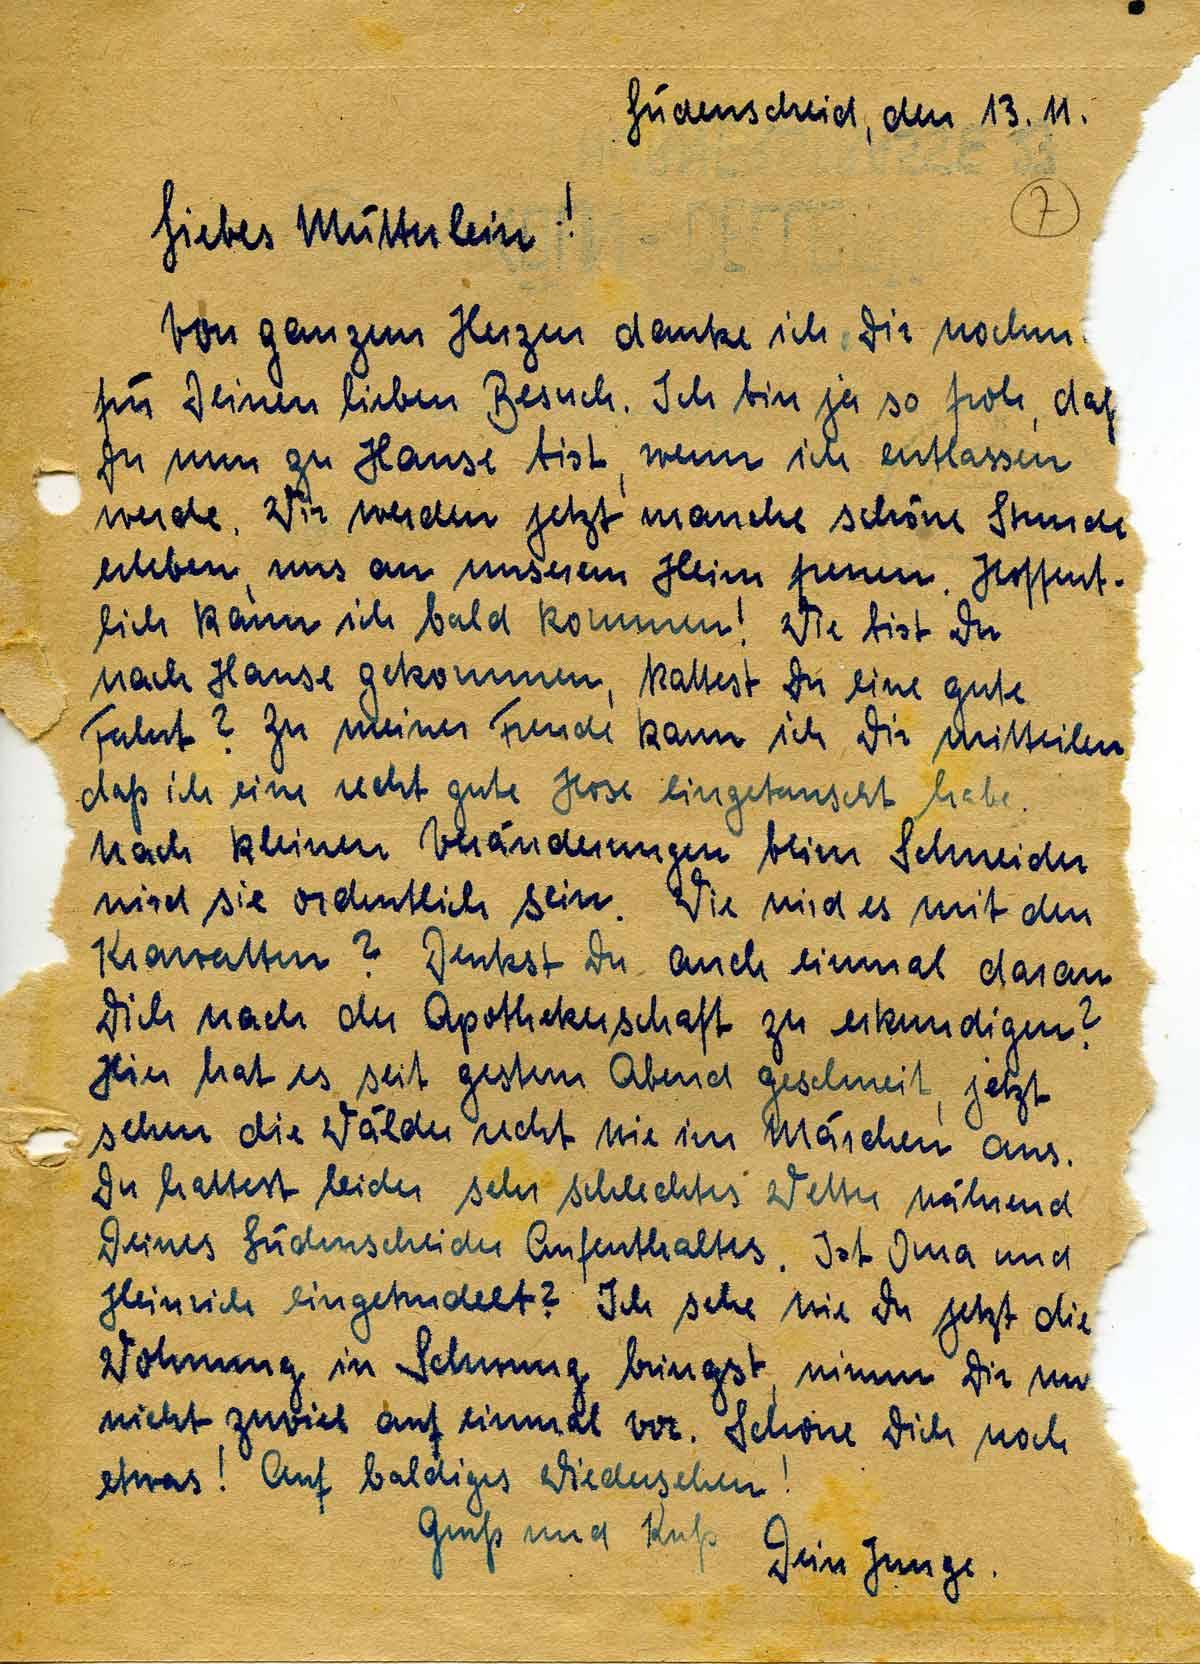 Lüdenscheid, den 13. 11.
7
Liebes Mütterlein!
Von ganzem Herzen danke ich Dir nochm
für Deinen lieben Besuch. Ich bin ja so froh, daß
Du nun zu Hause bist, wenn ich entlassen
werde. Wir werden jetzt manche schöne Stunde
erleben, uns an unserem Heim freuen. Hoffent-
lich kann ich bald kommen! Wie bist Du
nach Hause gekommen, hattest Du eine gute
Fahrt? Zu meiner Freude kann ich Dir mitteilen
daß ich eine recht gute Hose eingetauscht habe.
Nach kleinen Veränderungen beim Schneider
wird sie ordentlich sein. Wie wird es mit den
Krawatten? Denkst Du auch einmal daran
Dich nach der Apothekerschaft zu erkundigen?
Hier hat es seit gestern Abend geschneit, jetzt
sehen die Wälder recht wie im Märchen aus.
Du hattest leider sehr schlechtes Wetter während
Deines Lüdenscheider Aufenthaltes. Ist Oma und
Heinrich eingetrudelt? Ich sehe wie Du jetzt die
Wohnung in Schwung bringst, nimm Dir nur
nicht zuviel auf einmal vor. Schone Dich noch
etwas! Auf baldiges Wiedersehen!
Gruß und Kuß
Dein Junge.